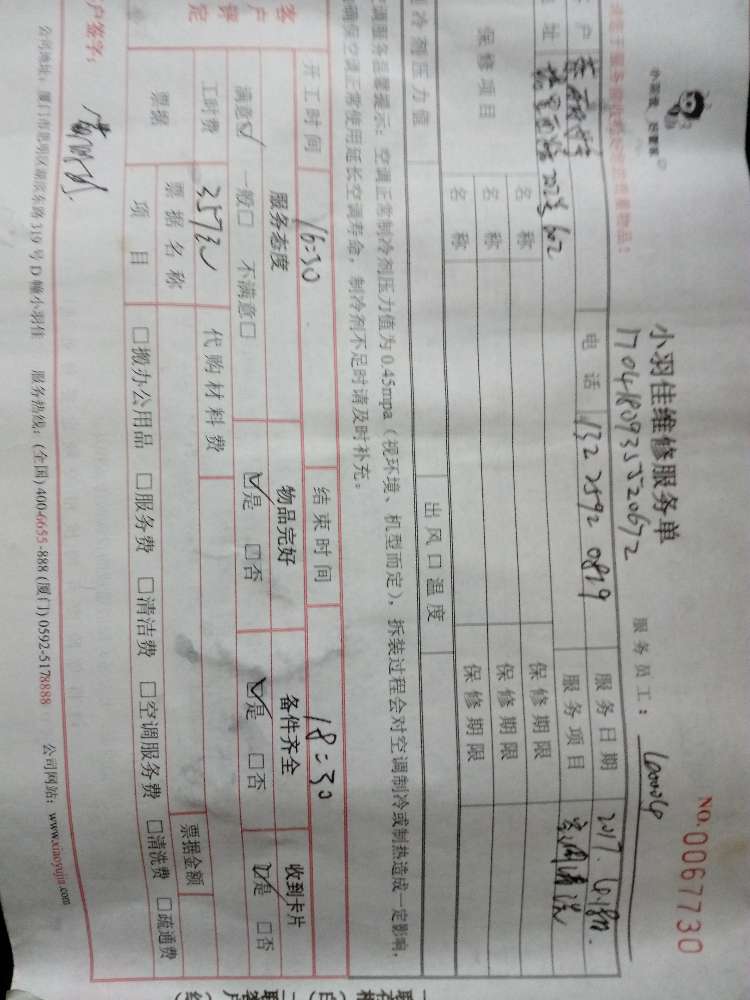 小羽佳 好管家
小羽佳维修服务单
NO. 0067730
服务员工：
户
电话 132 2592 0819
服务日期 2017.
址
服务项目 空调清洗
保修项目
名称
保修期限
名称
保修期限
名称
保修期限
制冷剂压力值
出风口温度
空调正常制冷剂压力值为 0.45mpa（视环境、机型而定），拆装过程会对空调制冷或制热造成一定影响，
确保空调正常使用延长空调寿命，制冷剂不足时请及时补充。
开工时间 16:30
结束时间 18:30
客户评定
服务态度
物品完好
备件齐全
收到卡片
满意☑ 一般□ 不满意□
☑是 □否
☑是 □否
☑是 □否
工时费 357元
代购材料费
票据
票据名称
票据金额
项目
□搬办公用品 □服务费 □清洁费 □空调服务费 □清洗费 □疏通费
户签字：
公司地址：厦门市思明区湖滨东路 319 号 D 幢小羽佳 服务热线：(全国) 400-6655-888 (厦门) 0592-5178888 公司网站：www.xiaoyujia.com